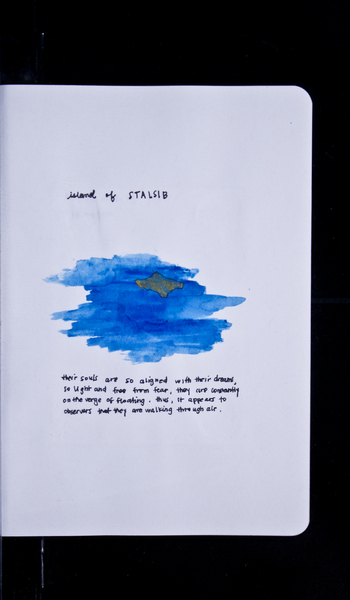 island of STALSIB
their souls are so aligned with their dreams,
so light and free from fear, they are constantly
on the verge of floating. thus, it appears to
observers that they are walking through air.